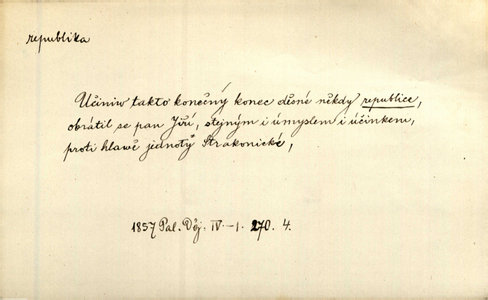 republika
Učiniw takto konečný konec děsné někdy republice,
obrátil se pan Jiří, stejným i úmyslem i účinkem,
proti hlawě jednoty Strakonické,
1857 Pal. Děj. IV–1. 270. 4.